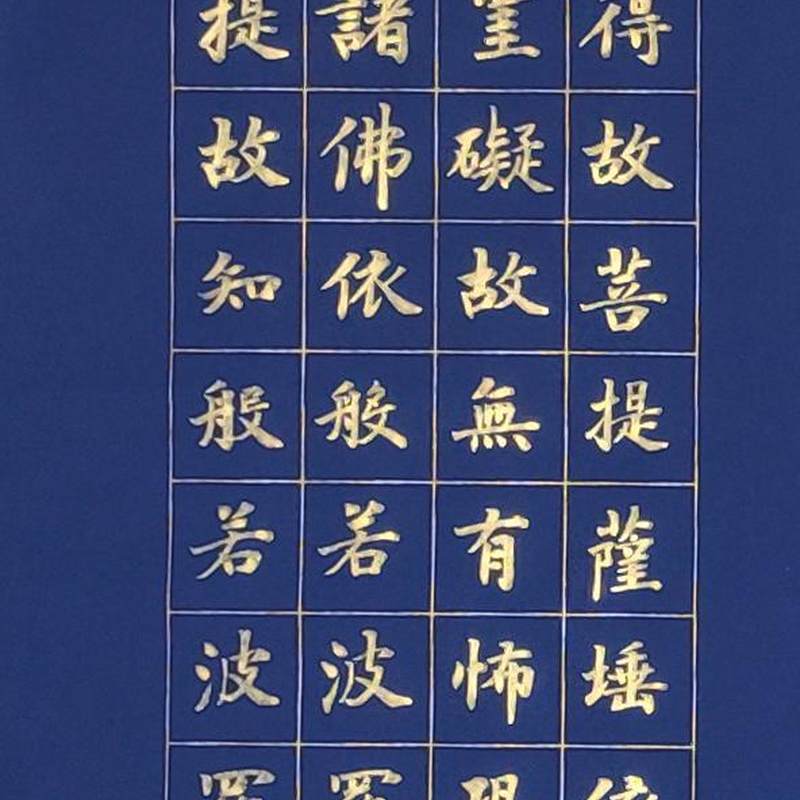 得故菩提薩埵
罣礙故無有怖
諸佛依般若波
提故知般若波